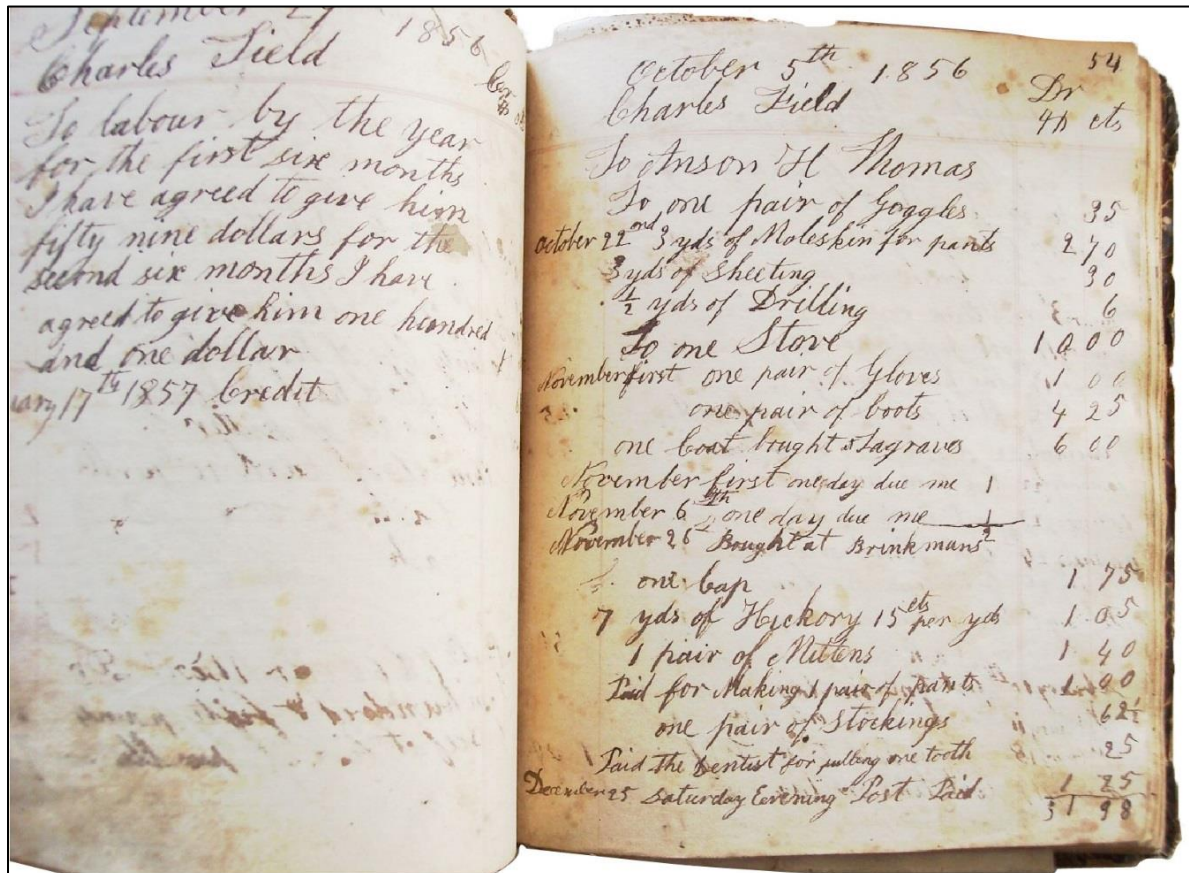 September 29
1856
Charles Field
To labour by the year
for the first six months
I have agreed to give him
fifty nine dollars for the
second six months I have
agreed to give him one hundred
and one dollar
uary 17th 1857 Credit
54
October 5th 1856
Charles Field Dr
$ cts
To Anson H Thomas
To one pair of Goggles 35
October 22nd 3 yds of Moleskin for pants 2 70
3 yds of Sheeting 30
1/2 yds of Drilling 6
To one Stove 10 00
November first one pair of Gloves 1 00
one pair of boots 4 25
one Coat bought 6 00
November first one day due me 1
November 6th one day due me 1
November 26 Bought at Brinkmans 2
one Cap 1 75
7 yds of Hickory 15 cts per yds 1 05
1 pair of Mittens 1 40
Paid for Making 1 pair of pants 1 00
one pair of Stockings 62 1/2
Paid the Dentist for pulling one tooth 25
December 25 Saturday Evening Post Paid 1 25
31 98